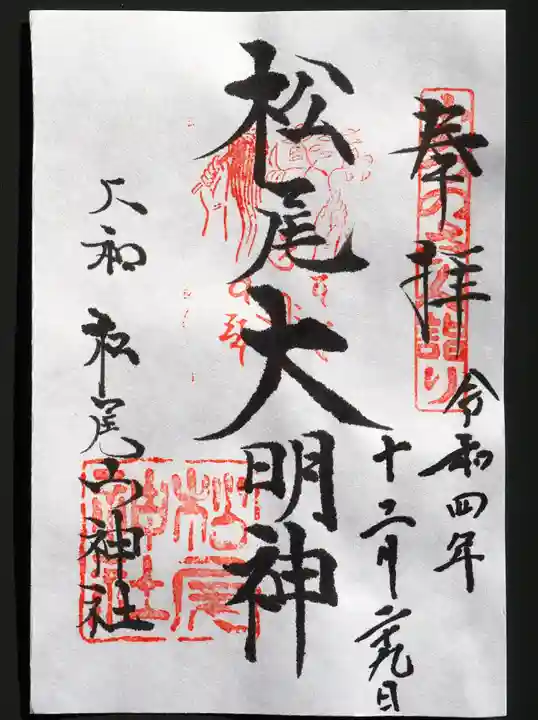 奉拝
令和四年
十二月二十九日
松尾大明神
大和 松尾山神社
松尾
神社